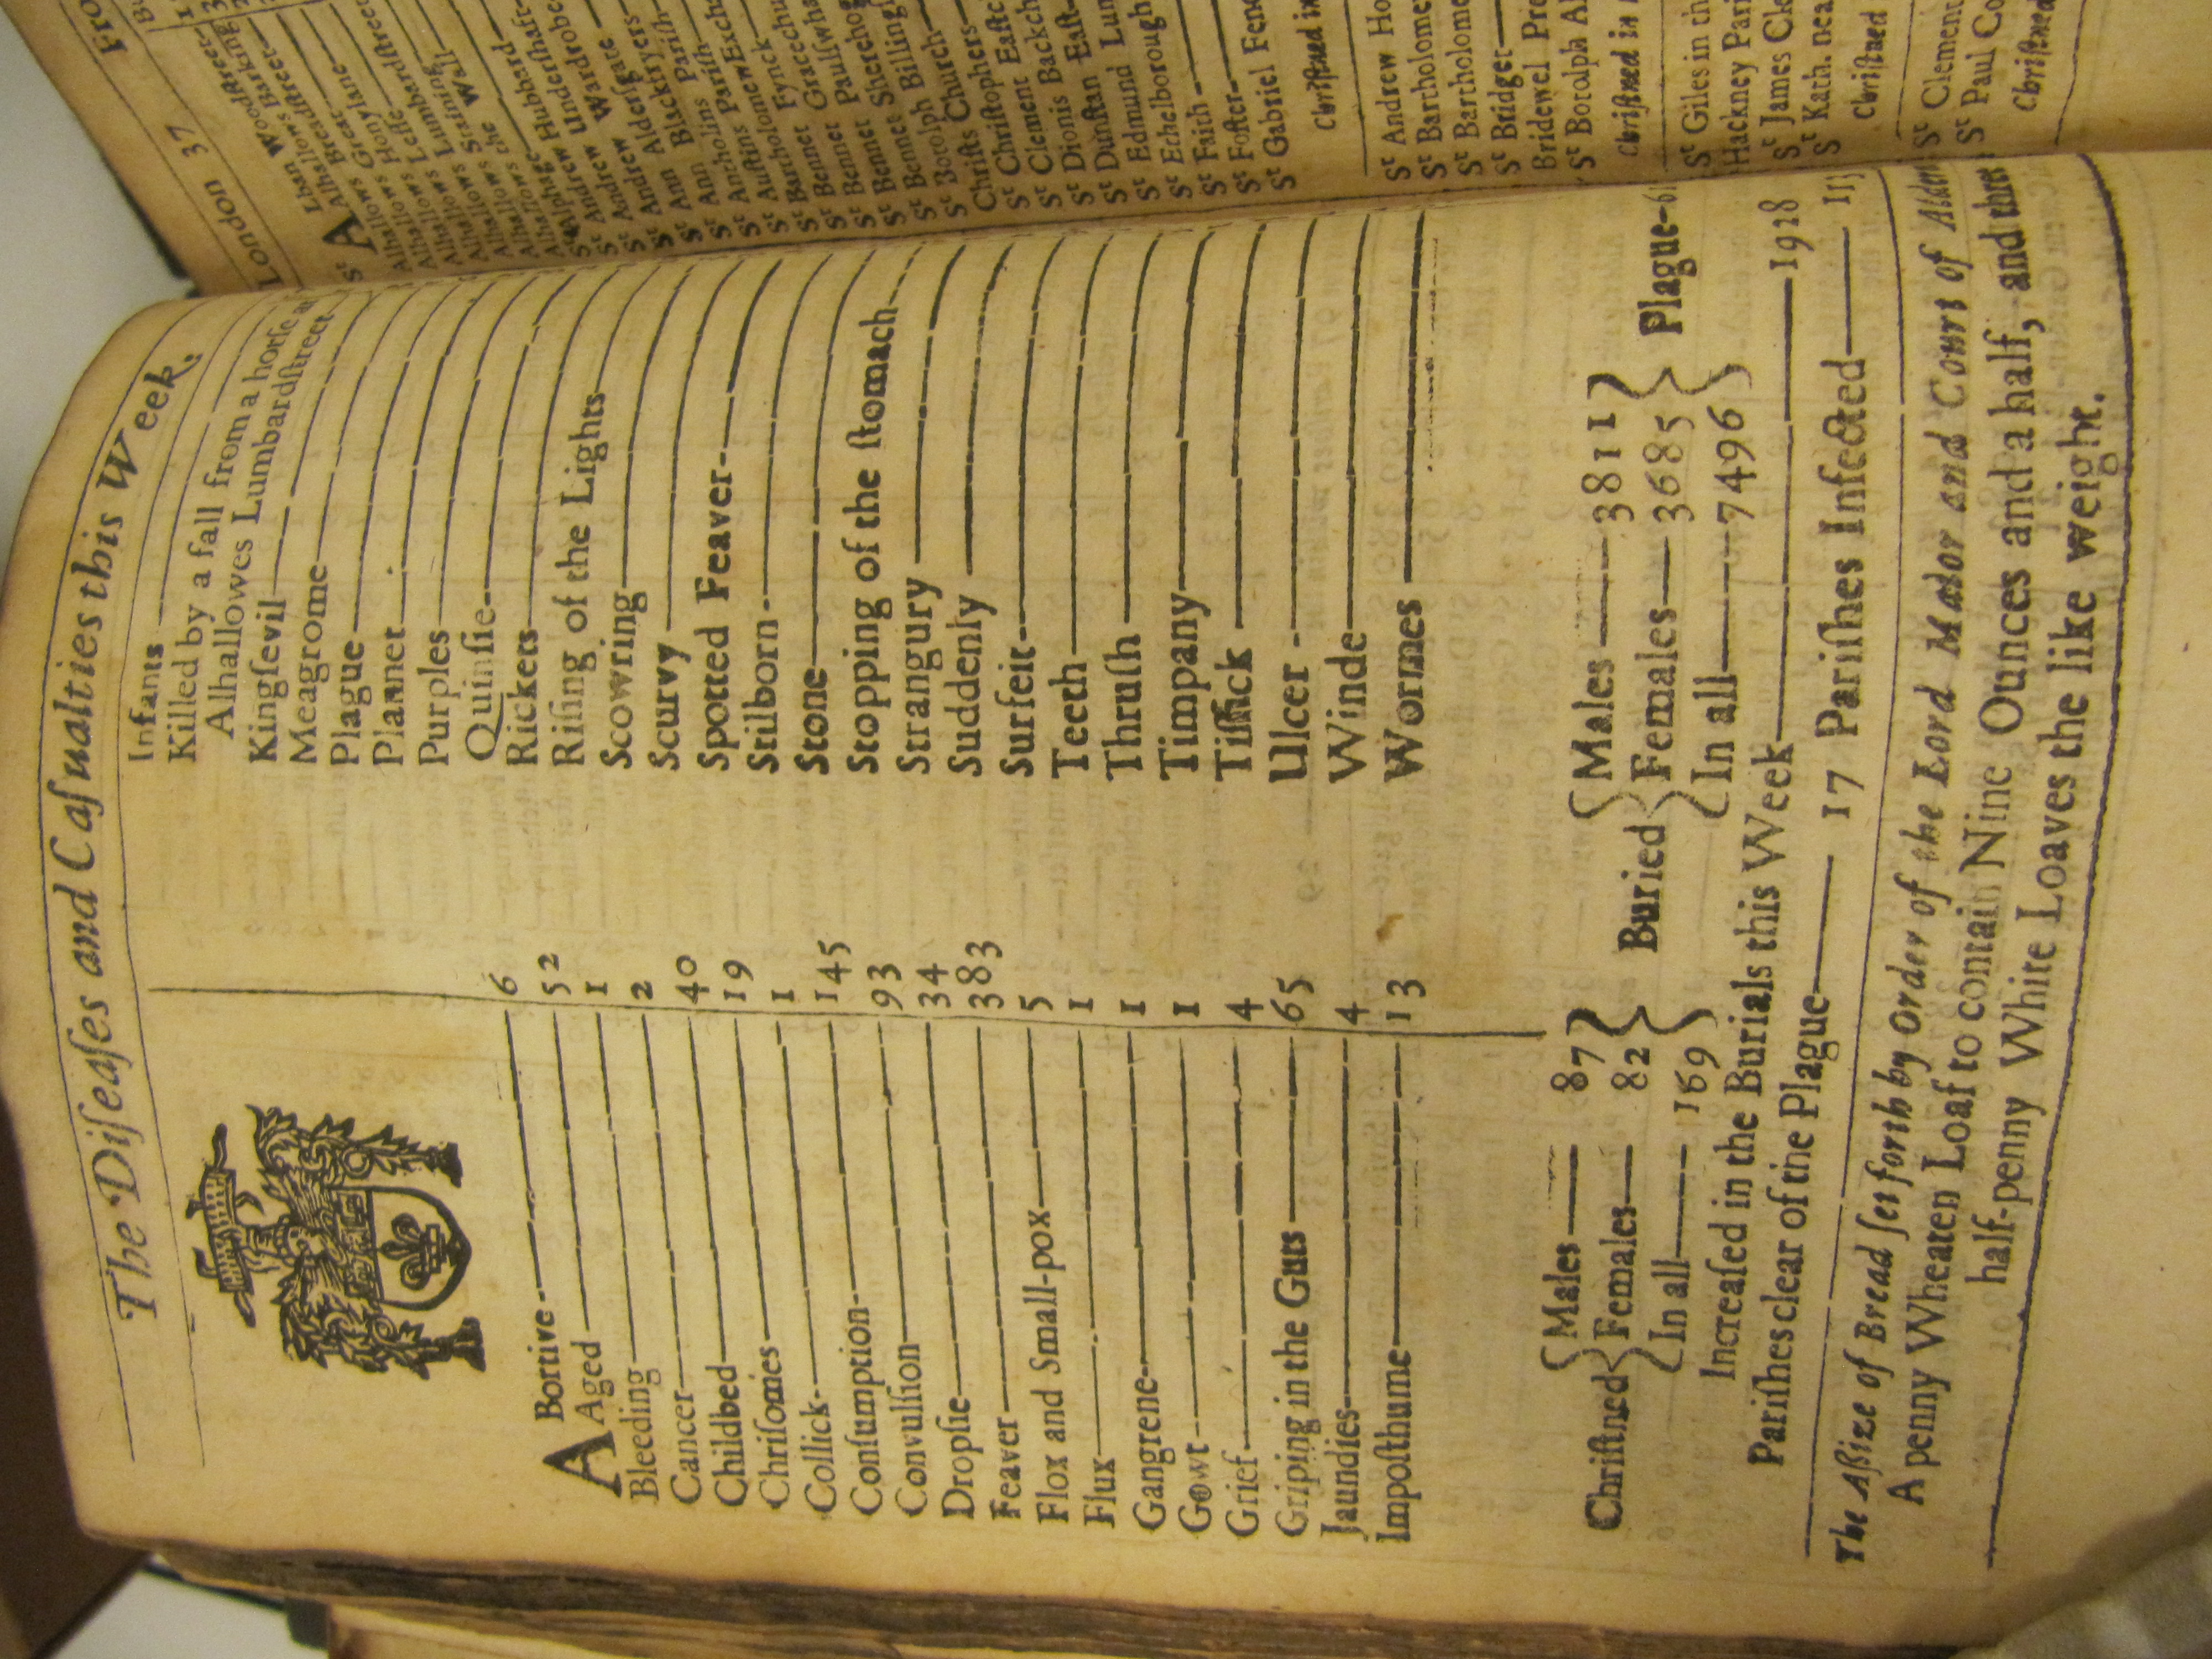 The Diſeaſes and Caſualties this Week.
ABortive 6
Aged 52
Bleeding 1
Cancer 2
Childbed 40
Chriſomes 19
Collick 1
Conſumption 145
Convulſion 93
Dropſie 34
Feaver 383
Flox and Small-pox 5
Flux 1
Gangrene 1
Gowt 1
Grief 1
Griping in the Guts 4
Jaundies 65
Impoſthume 4
13
Infants
Killed by a fall from a horſe
Alhallowes Lumbardſtreet
Kingſevil
Meagrome
Plague
Plannet
Purples
Quinſie
Rickets
Riſing of the Lights
Scowring
Scurvy
Spotted Feaver
Stilborn
Stone
Stopping of the ſtomach
Strangury
Suddenly
Surfeit
Teeth
Thruſh
Timpany
Tiſſick
Ulcer
Winde
Wormes
Chriſtned { Males 87 Females 82 In all 169 } Buried { Males 3811 Females 3685 In all 7496 } Plague
Increaſed in the Burials this Week 1928
Pariſhes clear of the Plague 17 Pariſhes Infected
The Aſſize of Bread ſet forth by Order of the Lord Maior and Court of
A penny Wheaten Loaf to contain Nine Ounces and a half, and three
half-penny White Loaves the like weight.
London 37
St ALban Woodſtreet
Alhallows Barking
Alhallows Breadſtreet
Alhallows Great
Alhallows Honylane
Alhallows Leſſe
Alhallows Lumbardſtreet
Alhallows Staining
Alhallows the Wall
Alphage
St Andrew Hubbard
St Andrew Underſhaft
St Andrew Wardrobe
St Ann Alderſgate
St Ann Blackfryers
St Antholins Pariſh
St Auſtins Pariſh
St Bartholomew
St Bennet Fynck
St Bennet Gracechu
St Bennet Paulſwha
St Bennet Sherehog
St Botolph Billing
Chriſts Church
St Chriſtophers
St Clement Eaſtc
St Dionis Backch
St Dunſtan Eaſt
St Edmund Lum
St Ethelborough
St Faith
St Foſter
St Gabriel Fenc
Chriſtned in
St Andrew Ho
St Bartholome
St Bartholome
St Bridget
Bridewel Pre
St Botolph Al
Chriſtned in
St Giles in th
Hackney Pari
St James Cle
St Kath. nea
Chriſtned
St Clement
St Paul Co
Chriſtned